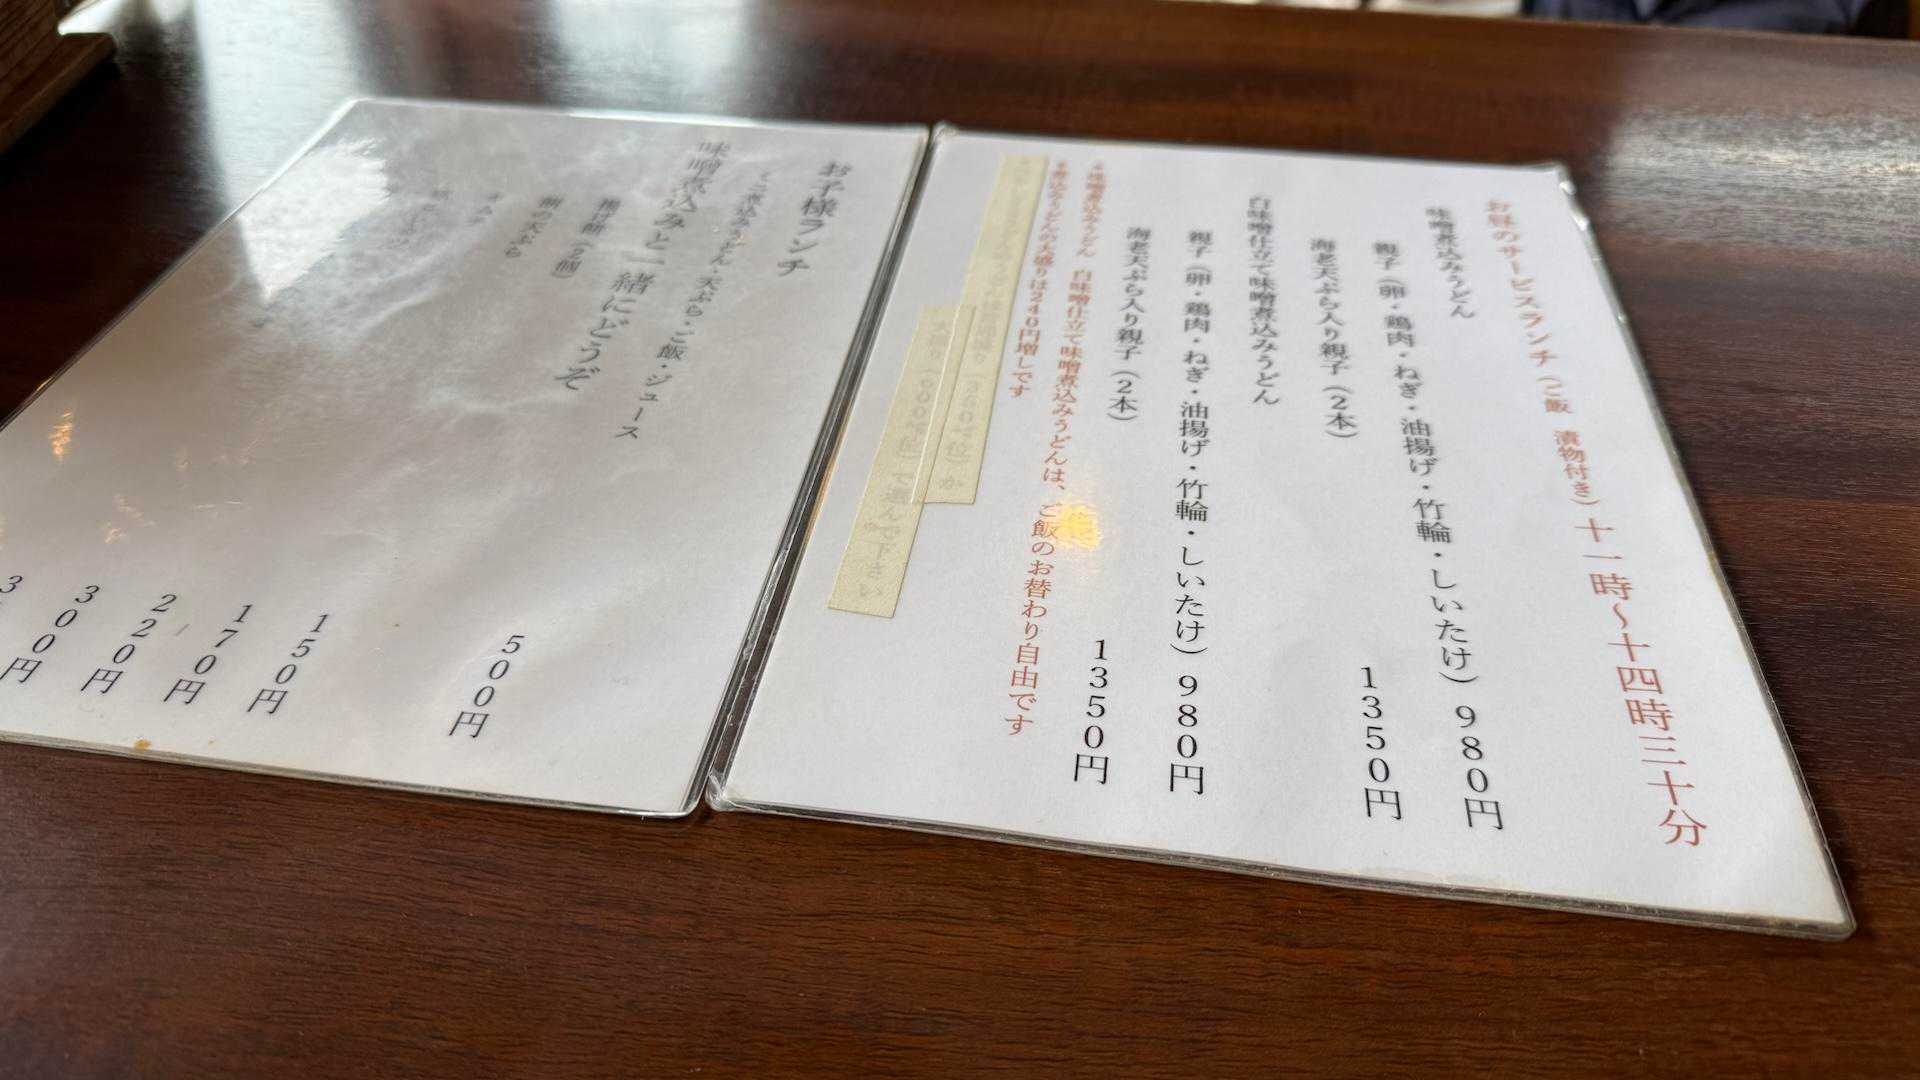 お昼のサービスランチ（ご飯　漬物付き）十一時～十四時三十分
味噌煮込みうどん
親子（卵・鶏肉・ねぎ・油揚げ・竹輪・しいたけ）980円
海老天ぷら入り親子（2本）1350円
白味噌仕立て味噌煮込みうどん
親子（卵・鶏肉・ねぎ・油揚げ・竹輪・しいたけ）980円
海老天ぷら入り親子（2本）1350円
味噌煮込みうどん　白味噌仕立て味噌煮込みうどんは、ご飯のお替わり自由です
煮込みうどんの大盛りは240円増しです
で選んで下さい
お子様ランチ
ミニ煮込みうどん・天ぷら・ご飯・ジュース　500円
味噌煮込みと一緒にどうぞ
揚げ餅（2個）150円
餅の天ぷら　170円
220円
300円